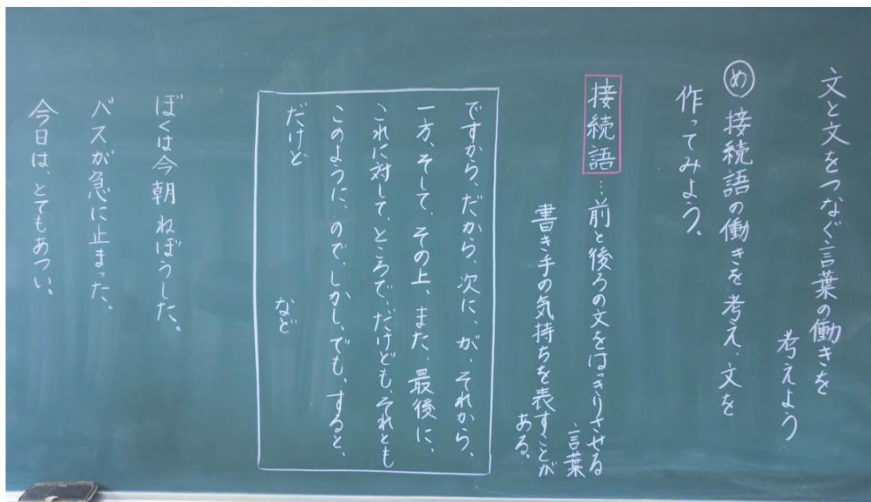 文と文をつなぐ言葉の働きを
考えよう
め 接続語の働きを考え、文を
作ってみよう。
接続語…前と後ろの文をはっきりさせる
言葉
書き手の気持ちを表すことが
ある。
ですから、だから、次に、が、それから、
一方、そして、その上、また、最後に、
これに対して、ところで、だけども、それとも
このように、ので、しかし、でも、すると、
だけど
など
ぼくは今朝ねぼうした。
バスが急に止まった。
今日は、とてもあつい。